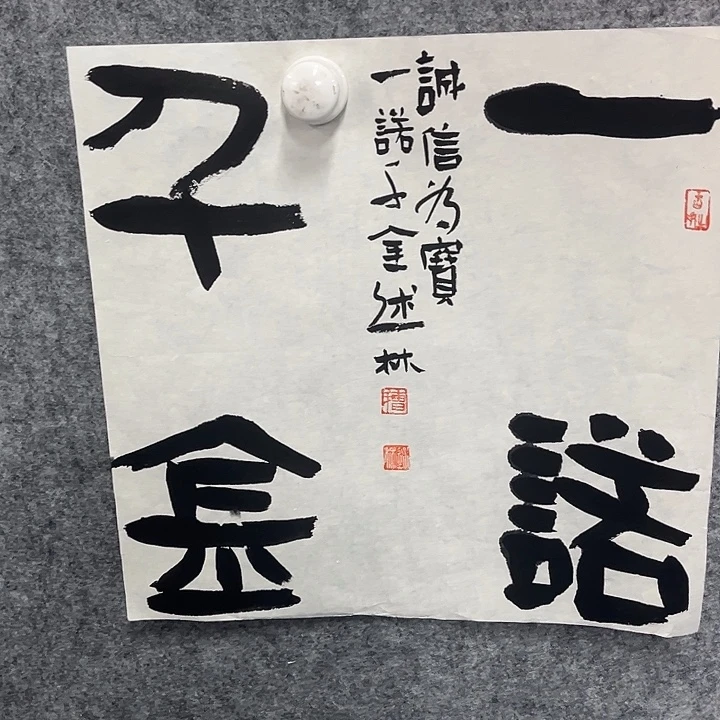 一諾
千金
誠信為寶
一諾千金述林